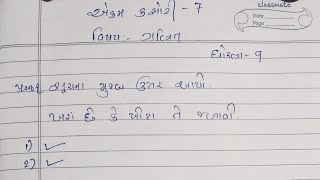 classmate
Date
Page
એકમ કસોટી - 7
વિષય:- ગણિત
ધોરણ - 9
સૂચના મુજબ ઉત્તર આપો.
ખરાં છે કે ખોટા તે જણાવો
1) ✓
2) ✓